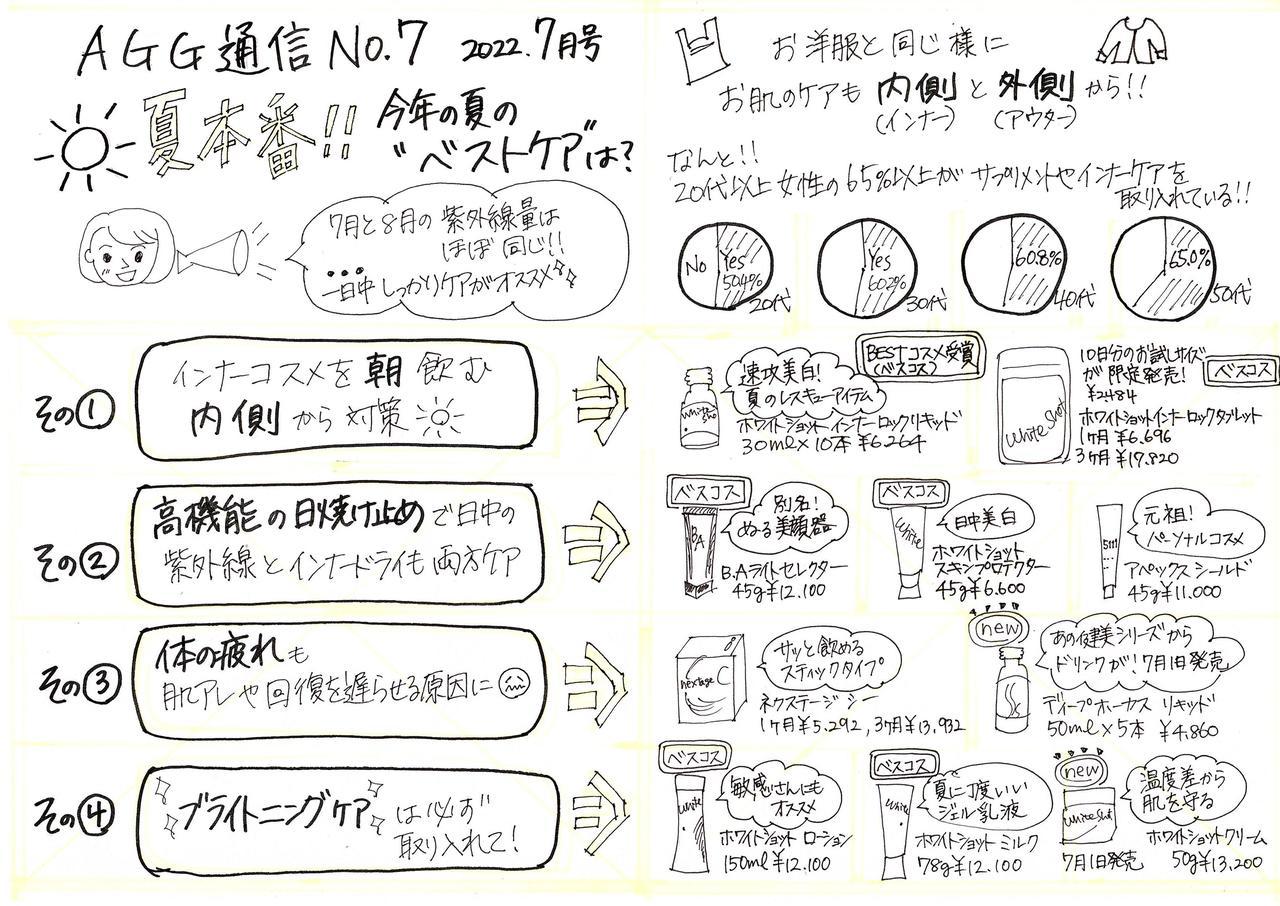 AGG通信 No.7 2022.7月号
夏本番!! 今年の夏の
"ベストケア"は?
7月と8月の紫外線量は
ほぼ同じ!!
一日中しっかりケアがオススメ
お洋服と同じ様に
お肌のケアも 内側と外側から!!
(インナー) (アウター)
なんと!!
20代以上女性の65%以上が サプリメントやインナーケアを
取り入れている!!
No Yes 50.4% 20代
Yes 60.2% 30代
60.8% 40代
65.0% 50代
その①
インナーコスメを朝飲む
内側から対策
White Shot
速攻美白!
夏のレスキューアイテム
BESTコスメ受賞
(ベスコス)
ホワイトショット インナーロックリキッド
30ml×10本 ¥6.264
White Shot
10日分のお試しサイズ
が限定発売!
¥2484
ベスコス
ホワイトショットインナーロックタブレット
1ヶ月 ¥6.696
3ヶ月 ¥17.820
その②
高機能の日焼け止めで日中の
紫外線とインナードライも両方ケア
ベスコス
BA
別名!
ぬる美顔器
B.Aライトセレクター
45g¥12.100
ベスコス
White
日中美白
ホワイトショット
スキンプロテクター
45g¥6.600
元祖!
パーソナルコスメ
アペックス シールド
45g¥11.000
その③
体の疲れも
肌アレや回復を遅らせる原因に
nextage C
サッと飲める
スティックタイプ
ネクステージ シー
1ヶ月¥5.292, 3ヶ月¥13.932
new
あの健美シリーズから
ドリンクが! 7月1日発売
ディープホーカス リキッド
50ml×5本 ¥4.860
その④
ブライトニングケアは必ず
取り入れて!
ベスコス
White
敏感さんにも
オススメ
ホワイトショット ローション
150ml¥12.100
ベスコス
White
夏に丁度いい
ジェル乳液
ホワイトショット ミルク
78g¥12.100
new
White Shot
温度差から
肌を守る
ホワイトショットクリーム
7月1日発売 50g¥13,200